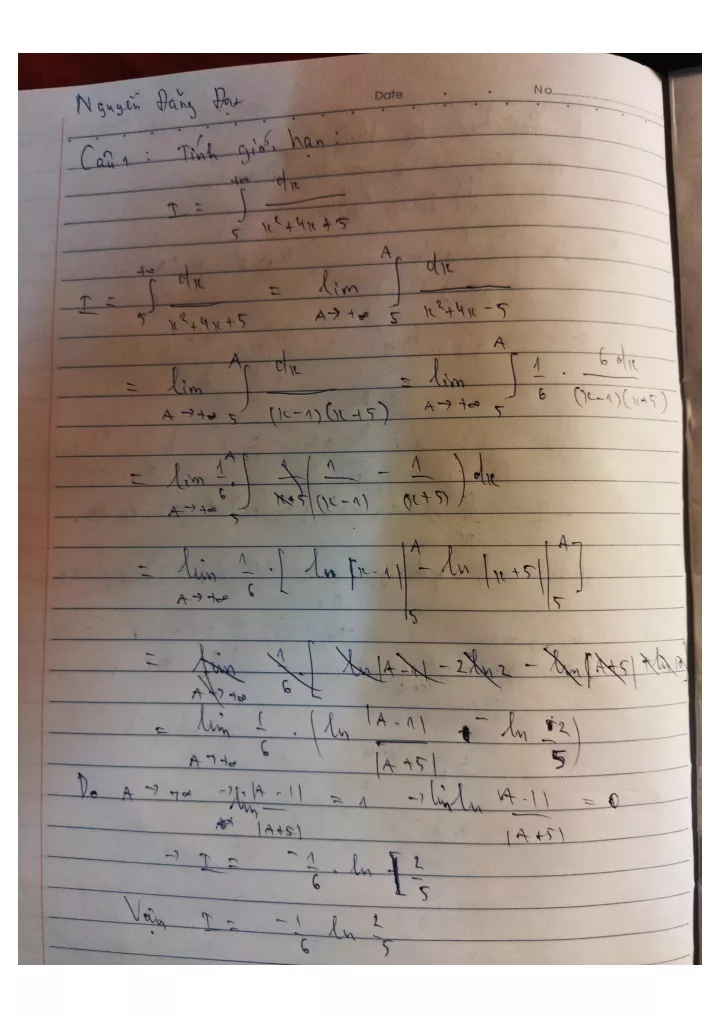 Nguyễn Đăng Đạt Date No
Câu 1 : Tính giới hạn :
I = ∫_5^{+∞} dx/(x²+4x+5)
I = ∫_5^{+∞} dx/(x²+4x+5) = lim_{A→+∞} ∫_5^A dx/(x²+4x-5)
= lim_{A→+∞} ∫_5^A dx/((x-1)(x+5)) = lim_{A→+∞} ∫_5^A 1/6 · 6dx/((x-1)(x+5))
= lim_{A→+∞} 1/6 · ∫_5^A (1/(x-1) - 1/(x+5)) dx
= lim_{A→+∞} 1/6 · [ ln|x-1| |_5^A - ln|x+5| |_5^A ]
= lim_{A→+∞} 1/6 [ ln|A-1| - 2ln2 - ln|A+5|
= lim_{A→+∞} 1/6 · (ln |A-1|/|A+5| - ln 2/5)
Do A → +∞ → lim |A-1|/|A+5| = 1 → lim ln |A-1|/|A+5| = 0
→ I = -1/6 · ln 2/5
Vậy I = -1/6 ln 2/5